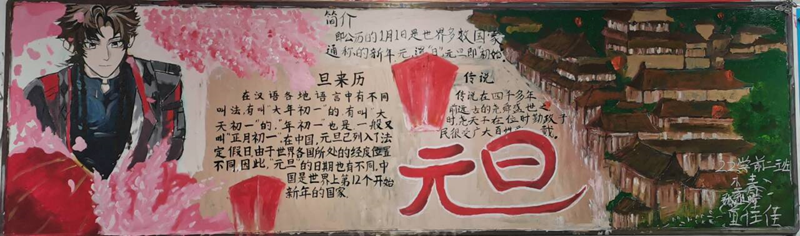 简介
即公历的1月1日是世界多数国家
通称的新年元,谓"日"元旦即"初始
旦来历
在汉语各地语言中有不同
叫法,有叫"大年初一"的有叫"大
天初一"的,"年初一也是一般又
叫"正月初一,在中国,元旦已列入了法
定假日由于世界各国所处的经度位置
不同,因此,"元旦"的日期也有不同,中
国是世界上第12个开始
新年的国家
传说
传说在四千多年
前远古的尧舜盛世之
时,尧天子在位时勤政于
民很受广大百姓 戴,
元旦
学前一班
佳佳